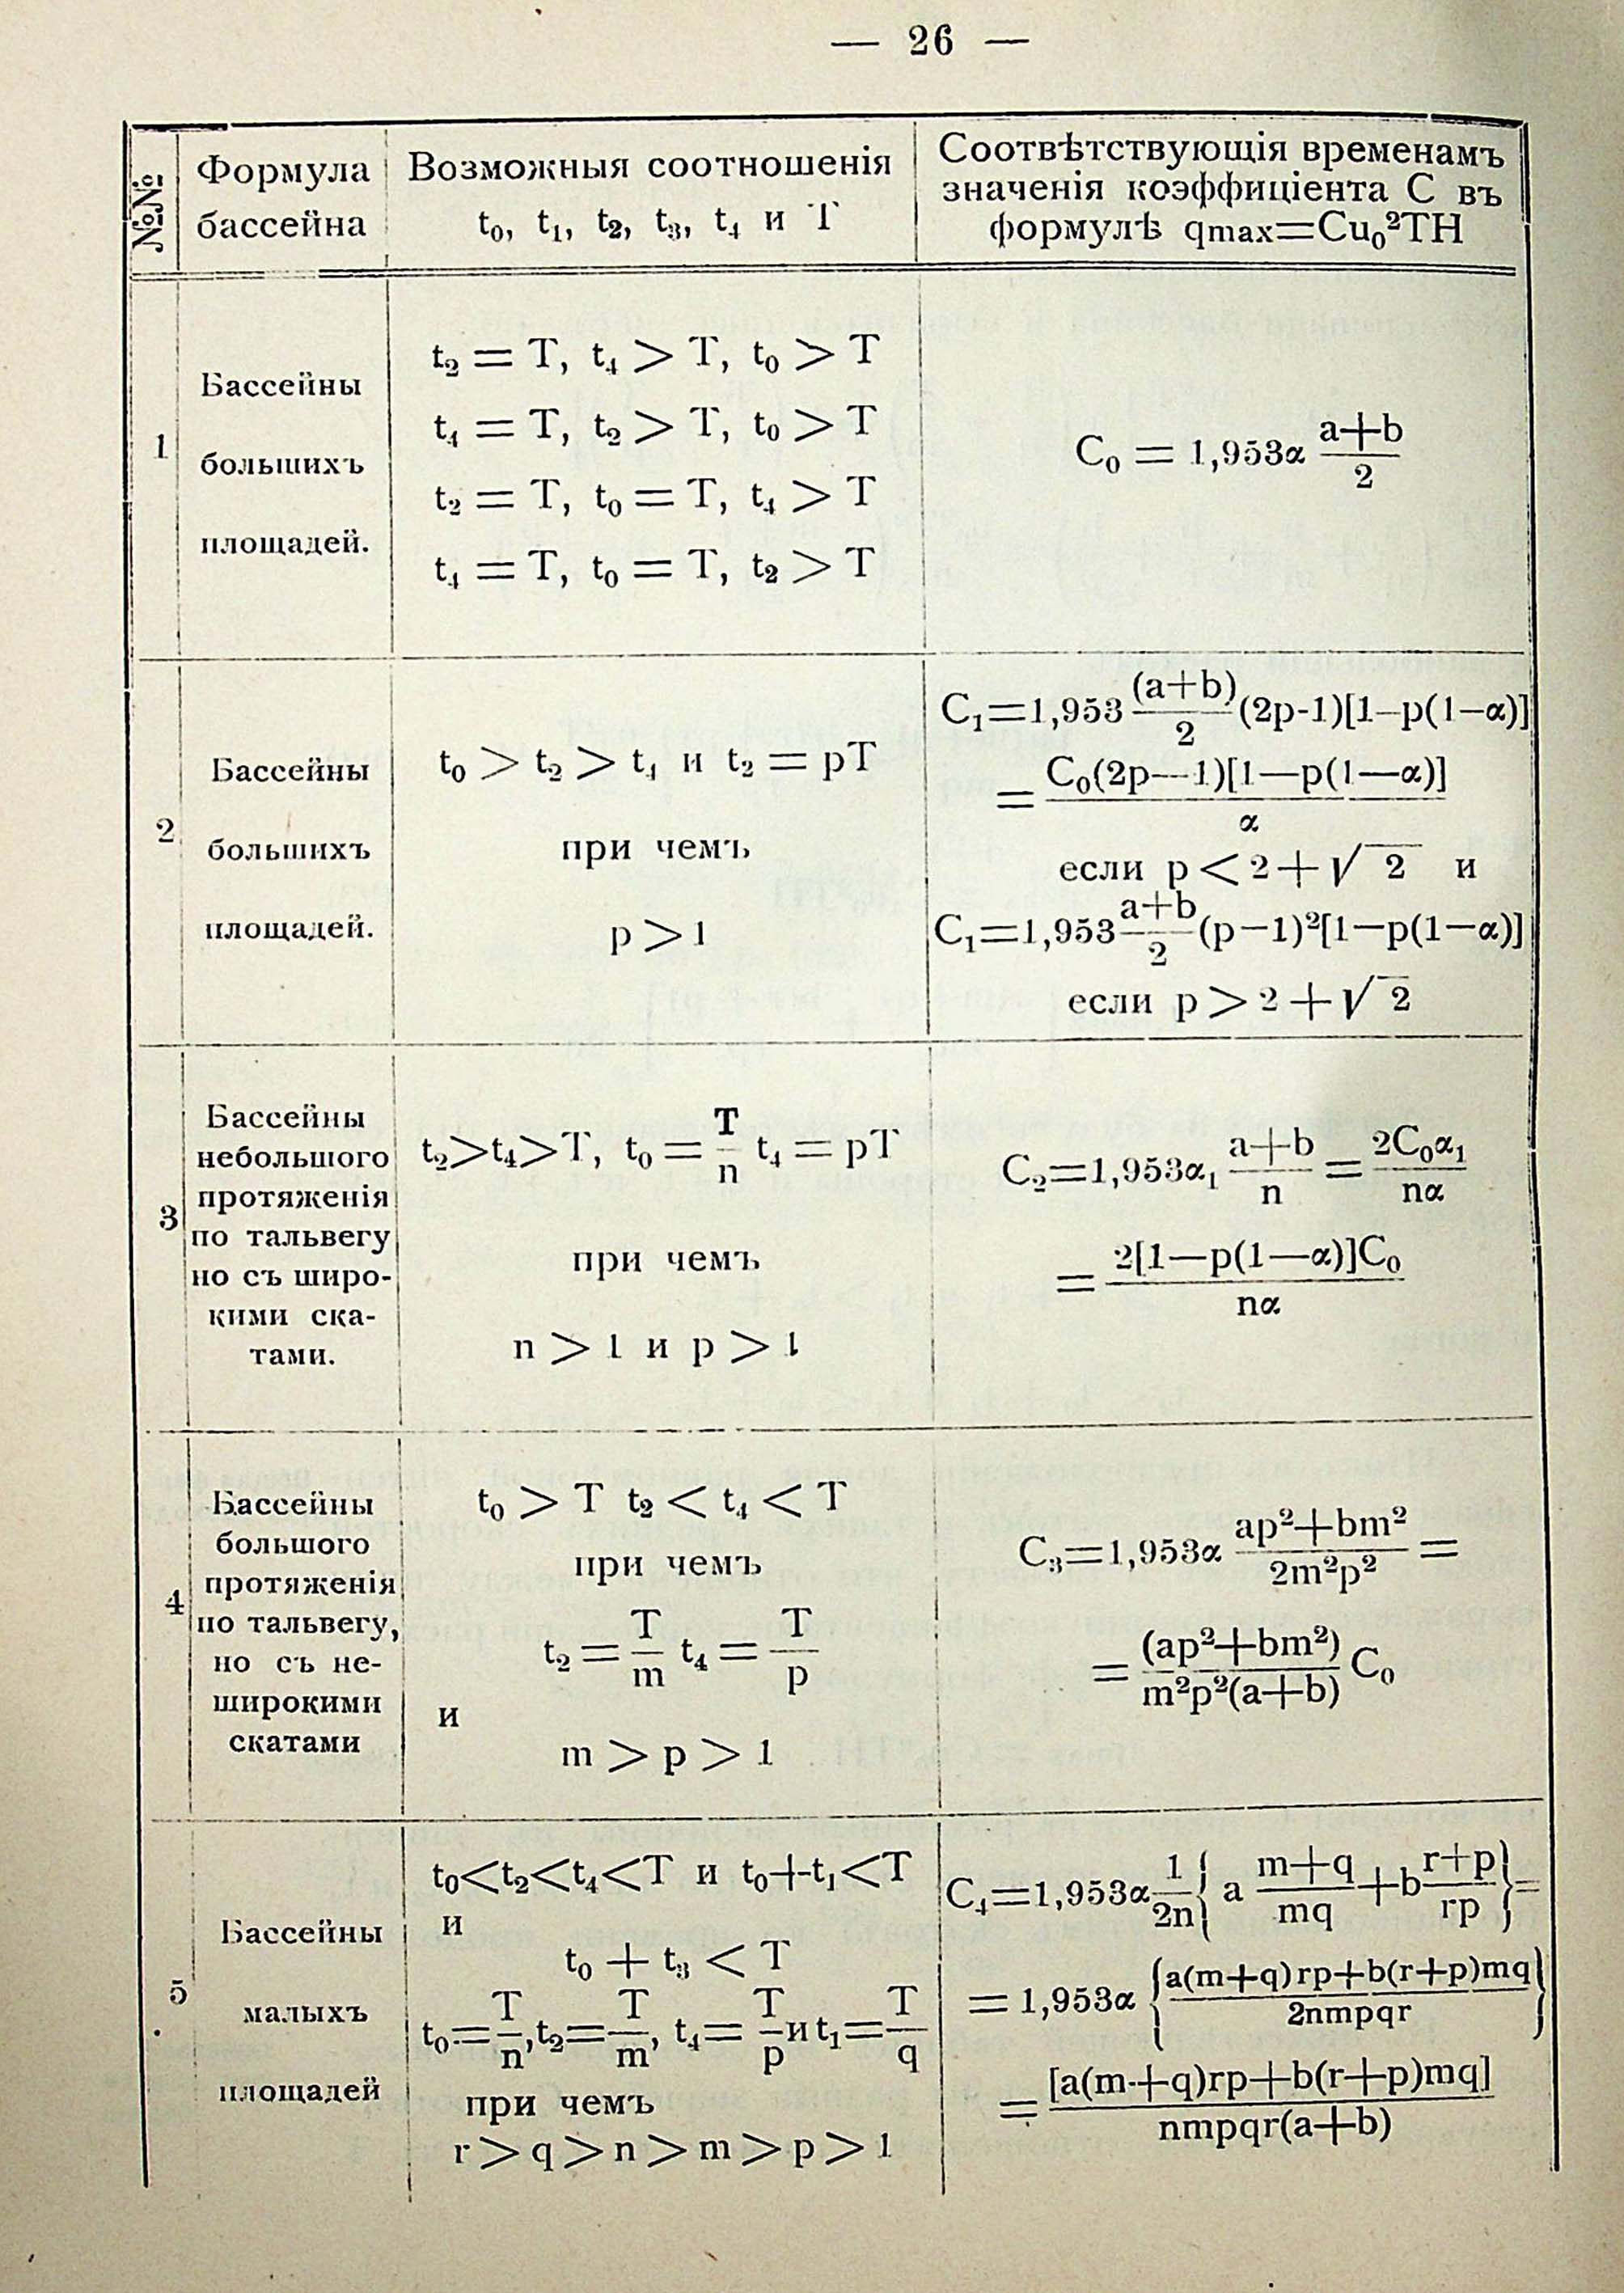 — 26 —
№№
Формула
бассейна
Возможныя соотношенія
t₀, t₁, t₂, t₃, t₄ и T
Соотвѣтствующія временамъ
значенія коэффиціента С въ
формулѣ qmax=Cu₀²TH
1
Бассейны
большихъ
площадей.
t₂ = T, t₄ > T, t₀ > T
t₄ = T, t₂ > T, t₀ > T
t₂ = T, t₀ = T, t₄ > T
t₄ = T, t₀ = T, t₂ > T
C₀ = 1,953α (a+b)/2
2
Бассейны
большихъ
площадей.
t₀ > t₂ > t₄ и t₂ = pT
при чемъ
p > 1
C₁=1,953 (a+b)/2 (2p-1)[1—p(1—α)]
= C₀(2p—1)[1—p(1—α)] / α
если p < 2 + √2 и
C₁=1,953 (a+b)/2 (p—1)²[1—p(1—α)]
если p > 2 + √2
3
Бассейны
небольшого
протяженія
по тальвегу
но съ широ-
кими ска-
тами.
t₂>t₄>T, t₀ = T/n t₄ = pT
при чемъ
n > 1 и p > 1
C₂=1,953α₁ (a+b)/n = 2C₀α₁/nα
= 2[1—p(1—α)]C₀ / nα
4
Бассейны
большого
протяженія
по тальвегу,
но съ не-
широкими
скатами
t₀ > T t₂ < t₄ < T
при чемъ
t₂ = T/m t₄ = T/p
и
m > p > 1
C₃=1,953α (ap²+bm²)/2m²p² =
= (ap²+bm²)/m²p²(a+b) C₀
5
Бассейны
малыхъ
площадей
t₀<t₂<t₄<T и t₀+t₁<T
и
t₀ + t₃ < T
t₀=T/n, t₂=T/m, t₄=T/p и t₁=T/q
при чемъ
r > q > n > m > p > 1
C₄=1,953α 1/2n { a (m+q)/mq + b (r+p)/rp }=
= 1,953α { a(m+q)rp+b(r+p)mq / 2nmpqr }
= [a(m+q)rp+b(r+p)mq] / nmpqr(a+b)